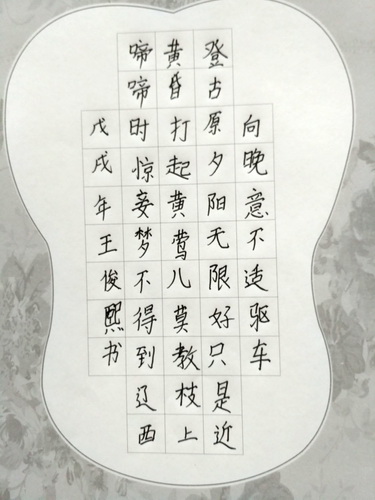 向晚意不适驱车
登古原夕阳无限好只是近
黄昏打起黄莺儿莫教枝上
啼啼时惊妾梦不得到辽西
戊戌年王俊熙书